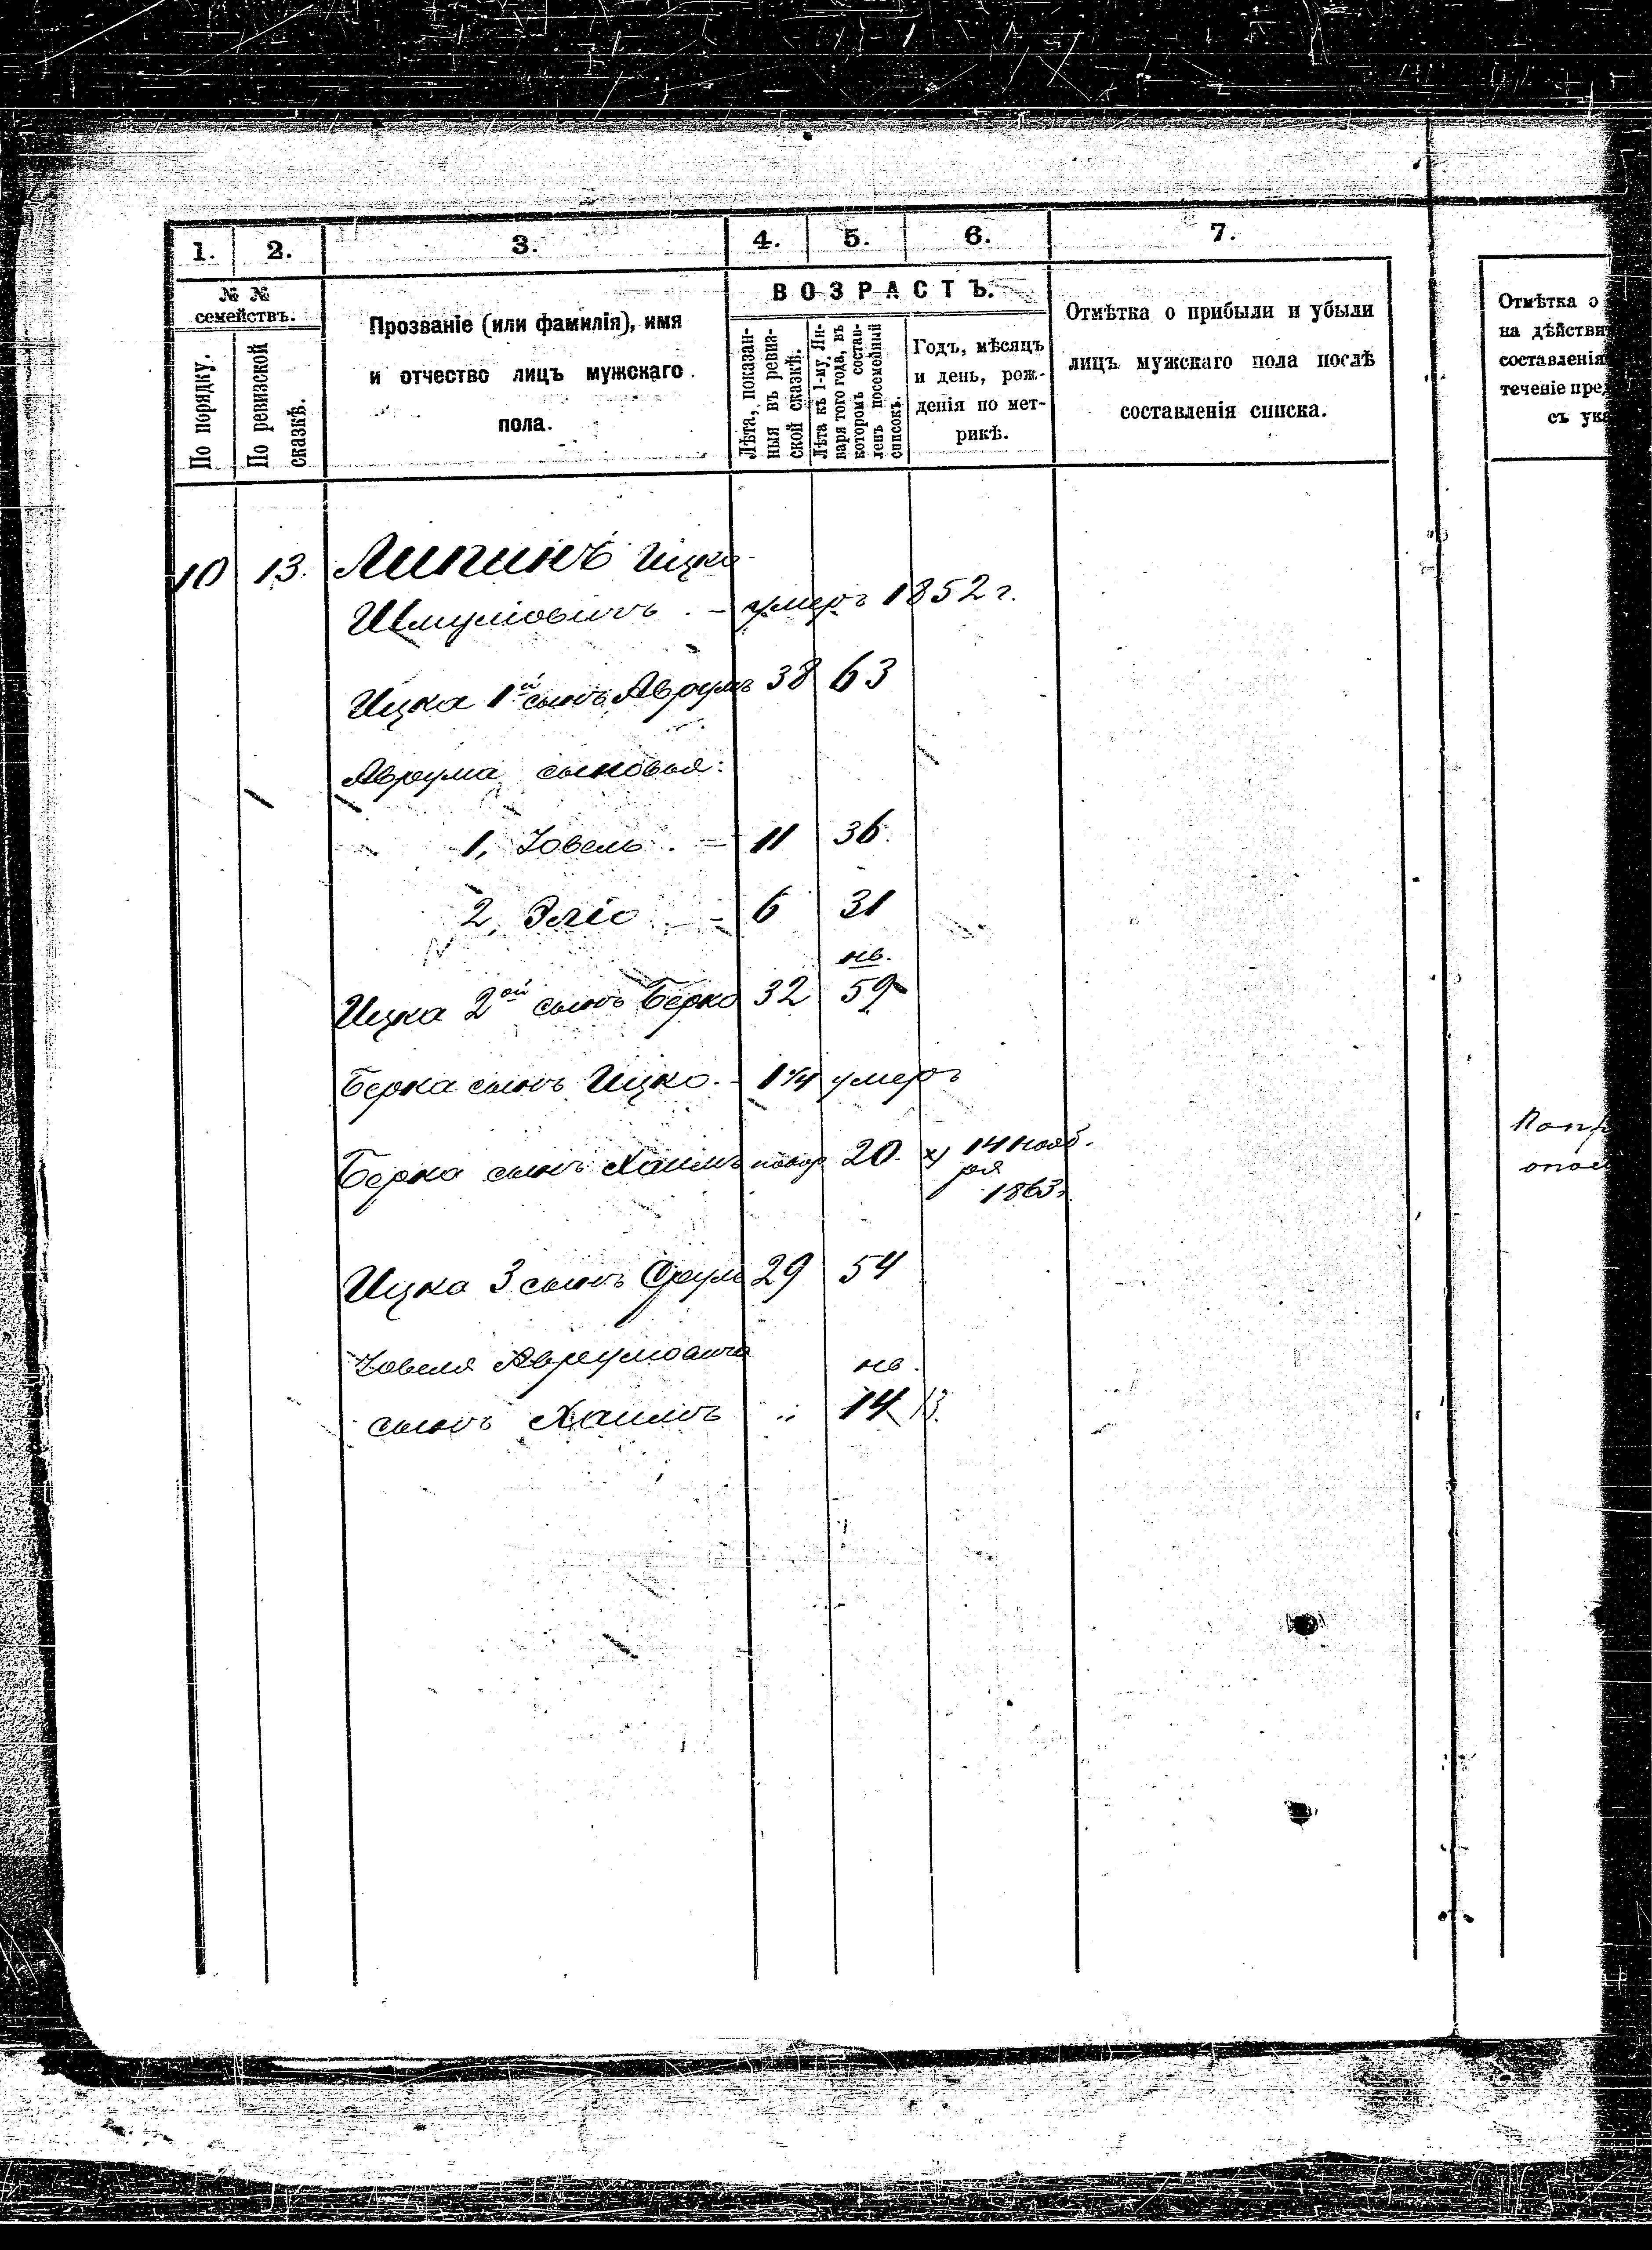 1. 2. 3. 4. 5. 6. 7.
№ № семействъ.
По порядку.
По ревизской сказкѣ.
Прозваніе (или фамилія), имя
и отчество лицъ мужскаго
пола.
ВОЗРАСТЪ.
Лѣта, показан-
ныя въ ревиз-
ской сказкѣ.
Лѣта къ 1-му Ян-
варя того года, въ
которомъ состав-
ленъ посемейный
списокъ.
Годъ, мѣсяцъ
и день, рож-
денія по мет-
рикѣ.
Отмѣтка о прибыли и убыли
лицъ мужскаго пола послѣ
составленія списка.
Отмѣтка о
на дѣйстви
составленія
теченіе пре
съ ука
10 13. Липинъ Ицко
Шмуйловичъ . – умеръ 1852 г.
Ицка 1й сынъ Аврумъ 38 63
Аврума сыновья:
1, Іовель . – 11 36.
2, Эліо – 6 31
нв.
Ицка 2ой сынъ Берко 32 59
Берка сынъ Ицко. – 1 1/4 умеръ
Берка сынъ Хаимъ новор 20. х) 14 нояб.
ря
1863г.
Ицка 3 сынъ Сруль 29 54
Іовеля Аврумовича нв.
сынъ Хаимъ „ 14 13.